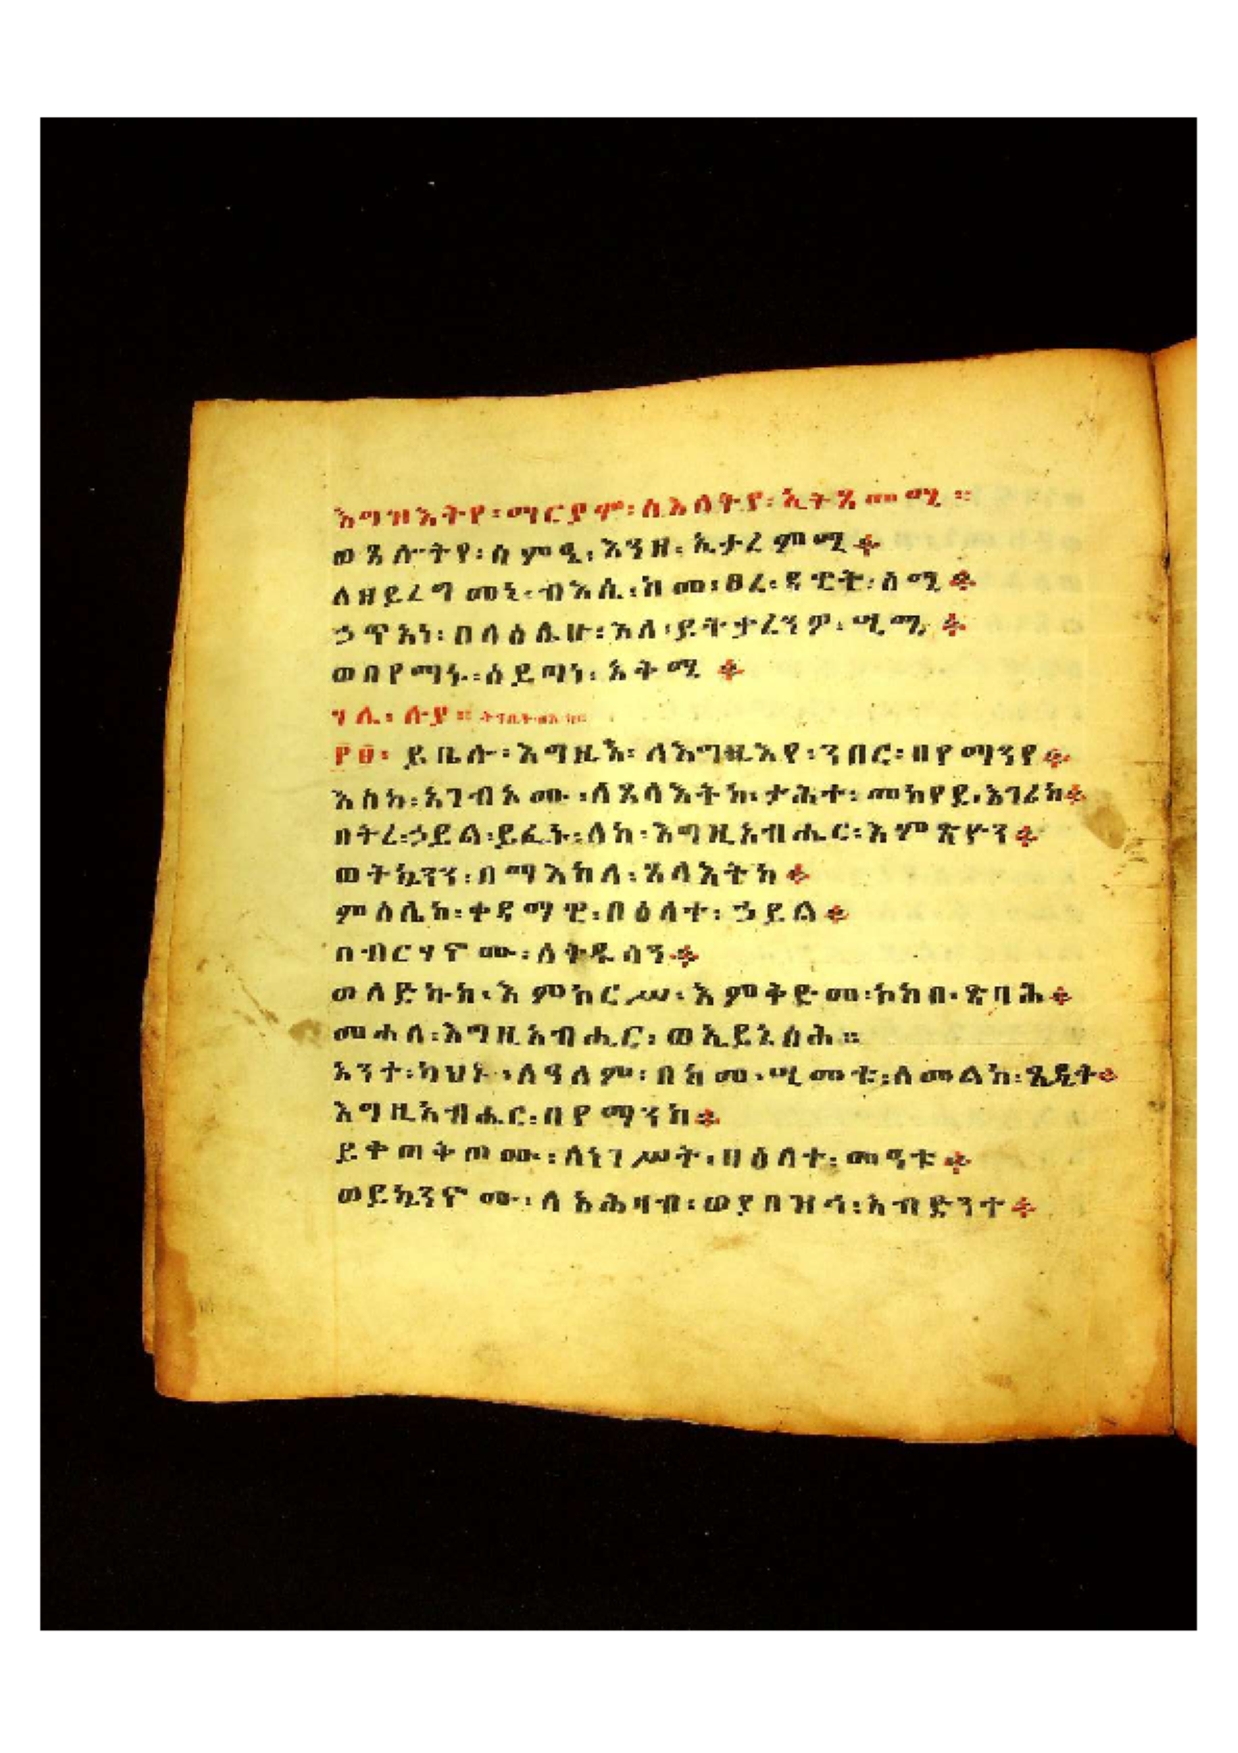 እግዝእትየ፡ማርያም፡ስእለትየ፡ኢትጼመሚ።
ወጸሎትየ፡ስምዒ፡እንዘ፡ኢታረምሚ
ለዘይረግመኒ፡ብእሲ፡ከመ፡ፀረ፡ዳዊት፡ሰሚ
ኃጥአነ፡በላዕሌሁ፡እለ፡ይትታረኑ፡ሚሚ
ወበየማኑ፡ሰይጣነ፡አቅሚ
ሃሌ፡ሉያ።
፻፱፡ ይቤሎ፡እግዚእ፡ለእግዚእየ፡ንበር፡በየማንየ
እስከ፡አገብኦሙ፡ለጸላእትከ፡ታሕተ፡መከየደ፡እገሪከ
በትረ፡ኃይል፡ይፌኑ፡ለከ፡እግዚአብሔር፡እምጽዮን
ወትኴንን፡በማእከለ፡ጸላእትከ
ምስሌከ፡ቀዳማዊ፡በዕለተ፡ኃይል
በብርሃኖሙ፡ለቅዱሳን
ወለድኩከ፡እምከርሥ፡እምቅድመ፡ኮከበ፡ጽባሕ
መሐለ፡እግዚአብሔር፡ወኢይኔስሕ።
አንተ፡ካህኑ፡ለዓለም፡በከመ፡ሢመቱ፡ለመልከ፡ጼዴቅ
እግዚአብሔር፡በየማንከ
ይቀጠቅጦሙ፡ለነገሥት፡በዕለተ፡መዓቱ
ወይኴንኖሙ፡ለአሕዛብ፡ወያበዝኅ፡አብድንተ